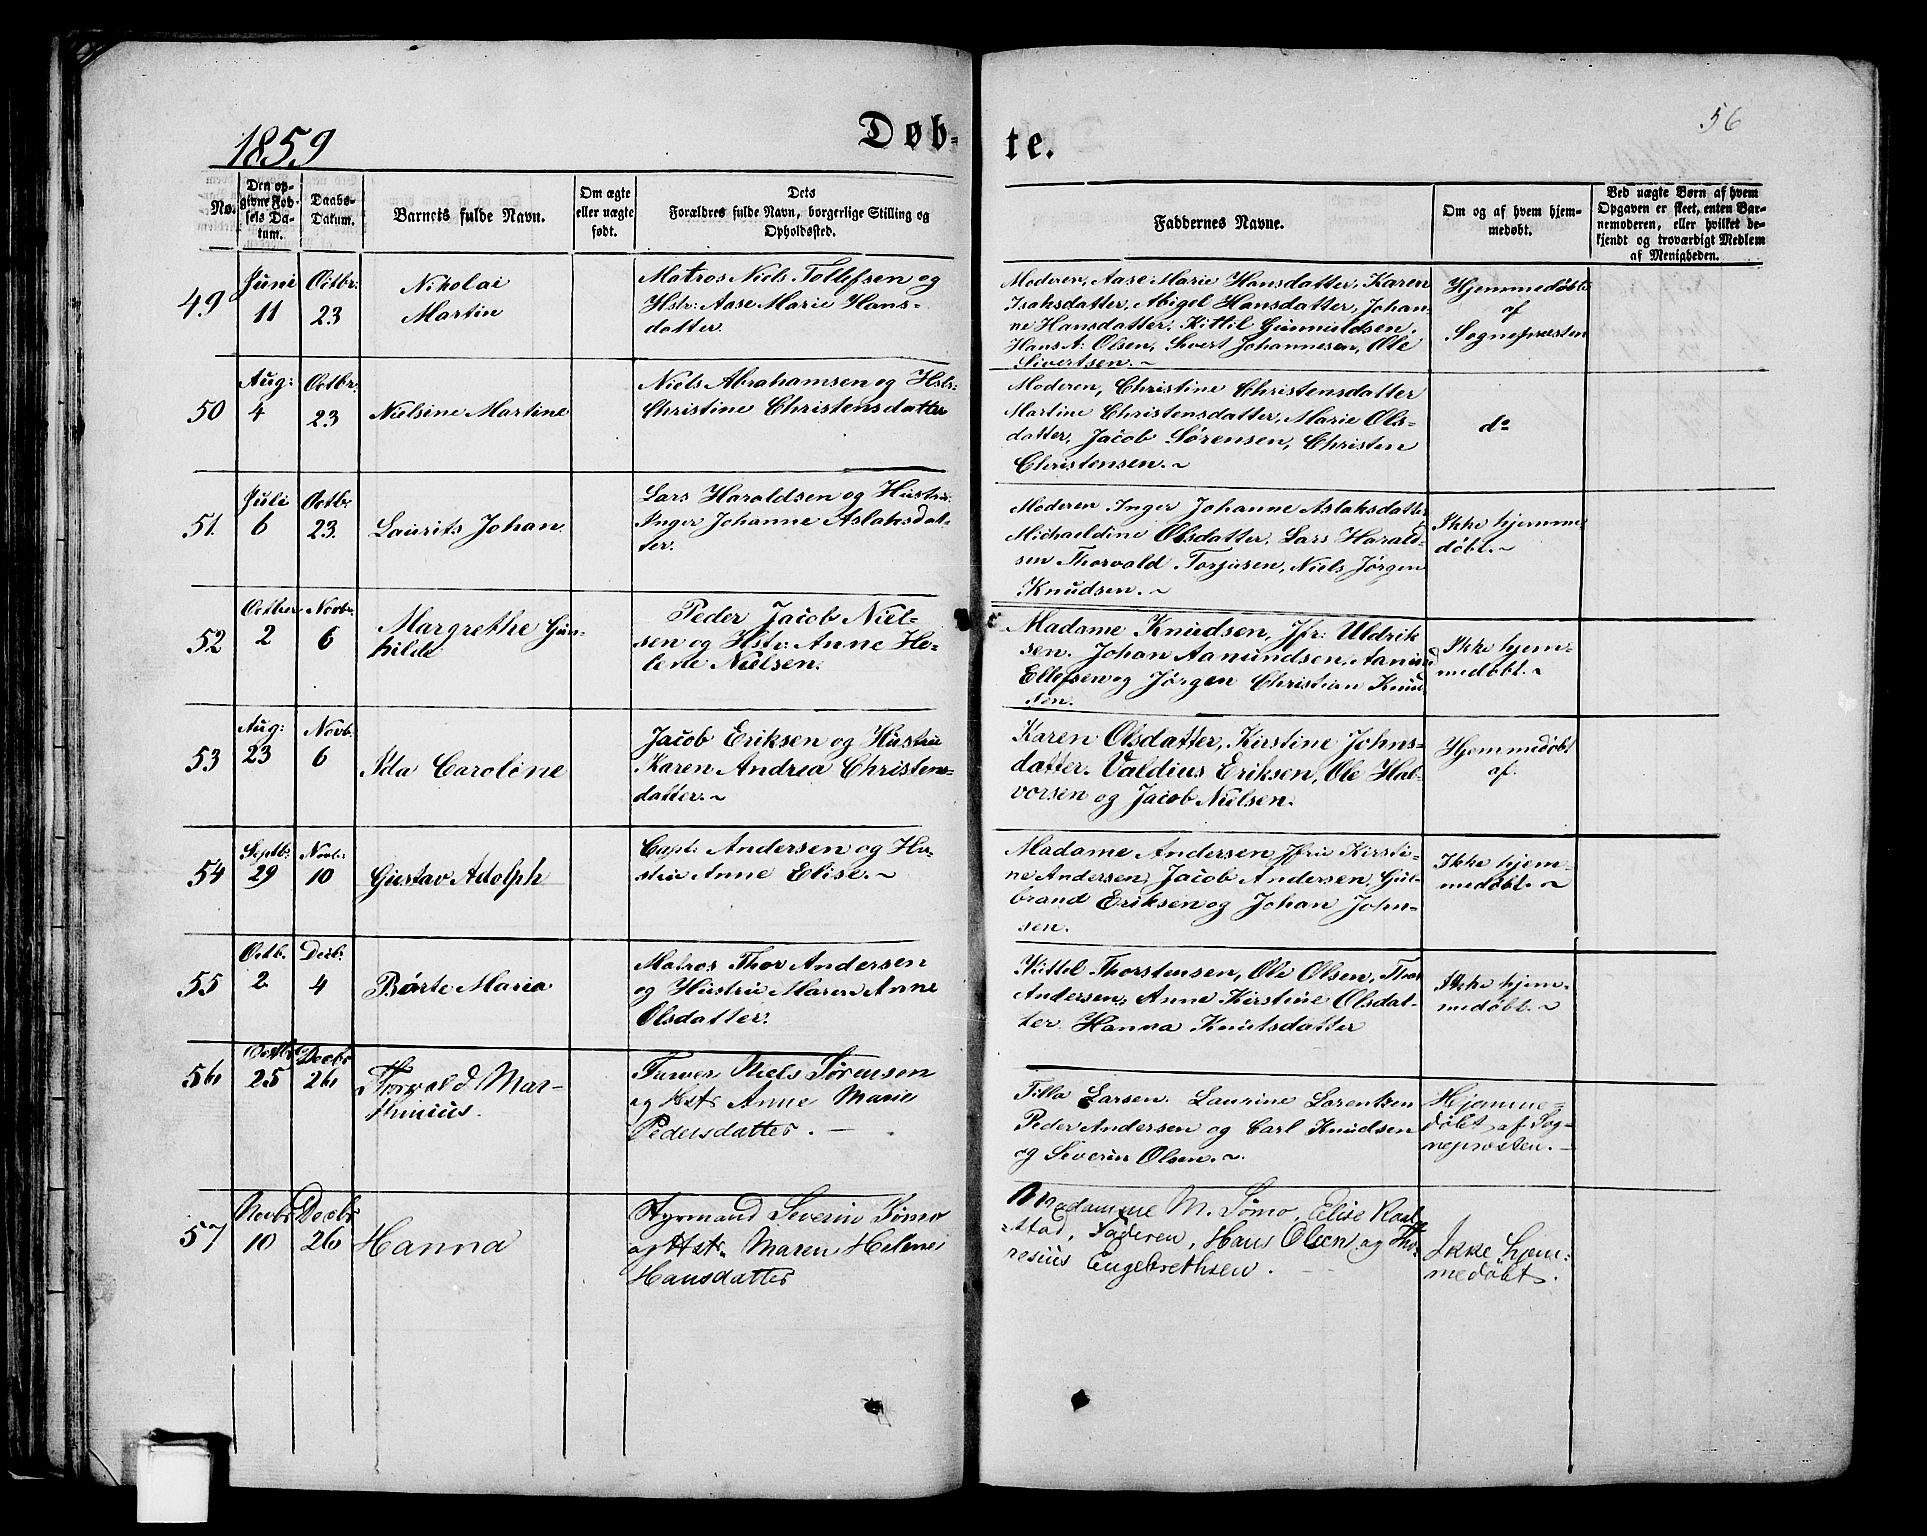 1859
Døb-
te.
56
No.
Den op-
givne Fød-
sels Da-
tum.
Daabs-
Datum.
Barnets fulde Navn.
Om ægte
eller uægte
født.
Dets
Forældres fulde Navn, borgerlige Stilling og
Opholdssted.
Faddernes Navne.
Om og af hvem hjem-
medøbt.
Ved uægte Børn af hvem
Opgaven er skeet, enten Bar-
nemoderen, eller hvilket be-
kjendt og troværdigt Medlem
af Menigheden.
49
Juni
11
Octbr:
23
Nikolai
Martin
Matros Niels Tollefsen og
Hstr: Aase Marie Hans-
datter.
Moderen, Aase Marie Hansdatter, Karen
Isaksdatter, Abigel Hansdatter, Johan-
ne Hansdatter, Kittil Gunnuldsen,
Hans A: Olsen, Sivert Johannesen, Ole
Sivertsen.~
Hjemmedøbt
af
Sognepræsten
50
Aug:
4
Octbr.
23
Nielsine Martine
Niels Abrahamsen og Hstr:
Christine Christensdatter
Moderen, Christine Christensdatter
Martine Christensdatter, Marie Ols-
datter, Jacob Sørensen, Christen
Christensen.~
do
51.
Juli
6
Octbr.
23.
Laurits Johan
Lars Haraldsen og Hustru
Inger Johanne Aslaksdat-
ter.
Moderen Inger Johanne Aslaksdatter
Michaeldine Olsdatter, Lars Harald-
sen Thorvald Torjusen, Niels Jørgen
Knudsen.~
Ikke hjemme
døbt.~
52
Octber
2
Novbr.
6
Margrethe Gun-
hilde
Peder Jacob Niel-
sen og Hstr: Anne He-
lene Nielsen.
Madame Knudsen, Jfr: Uldrik
sen. Johan Aanundsen, Aanund
Ellefsen og Jørgen Christian Knud
sen.
Ikke hjem-
medøbt.~
53
Aug:
23
Novb.
6
Ida Caroline
Jacob Eriksen og Hustru
Karen Andrea Christens-
datter.~
Karen Olsdatter, Kirstine Johns-
datter. Valdius Eriksen, Ole Hal-
vorsen og Jacob Nielsen.
Hjemmedøbt
af.
54
Septb:
29
Novb:
10
Gustav Adolph
Capt: Andersen og Hu-
stru Anne Elise.~
Madame Andersen, Jfru Kirsti-
ne Andersen, Jacob Andersen, Gul-
brand Eriksen og Johan John-
sen.
Ikke hjem-
medøbt.~
55
Octb.
2
Decb:
4
Børte Maria
Matros Thor Andersen
og Hustru Maren Anne
Olsdatter.
Kittel Thorstensen, Ole Olsen, Thor
Andersen, Anne Kirstine Olsdat-
ter. Hanna Knutsdatter
Ikke hjem-
medøbt.~
56
Octbr
25
Decbr
26
Thorvald Mar-
thinius.
Farver Niels Sørensen
og Hstr Anne Marie
Pedersdatter. —
Tilla Larsen. Laurine Lorentzen
Peder Andersen og Carl Knudsen
og Severin Olsen.~.
Hjemme-
døbt af Sog-
neprosten.—
57
Novbr
10
Decbr
26
Hanna
Styrmand Severin Sømo
og Hstr. Maren Helene
Hansdatter
Madamme M. Sømo, Elise
stad, Faderen, Hans Olsen og Tho-
resius Engebrethsen.
Ikke hjem-
medøbt.